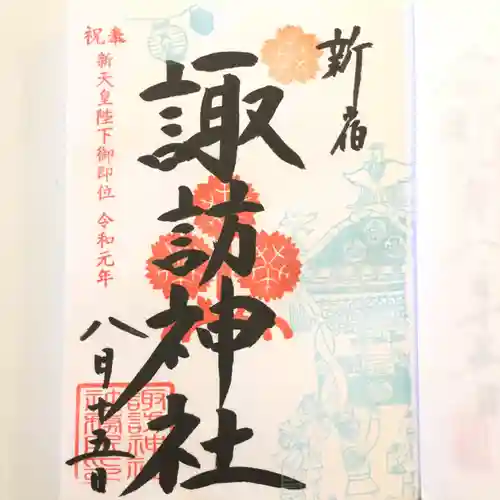 新宿
諏訪神社
奉祝
新天皇陛下御即位 令和元年
八月十五日